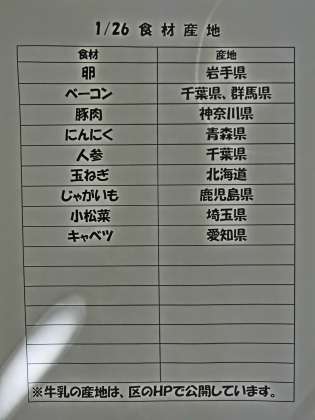 1/26 食材産地
食材 産地
卵 岩手県
ベーコン 千葉県、群馬県
豚肉 神奈川県
にんにく 青森県
人参 千葉県
玉ねぎ 北海道
じゃがいも 鹿児島県
小松菜 埼玉県
キャベツ 愛知県
※牛乳の産地は、区のHPで公開しています。